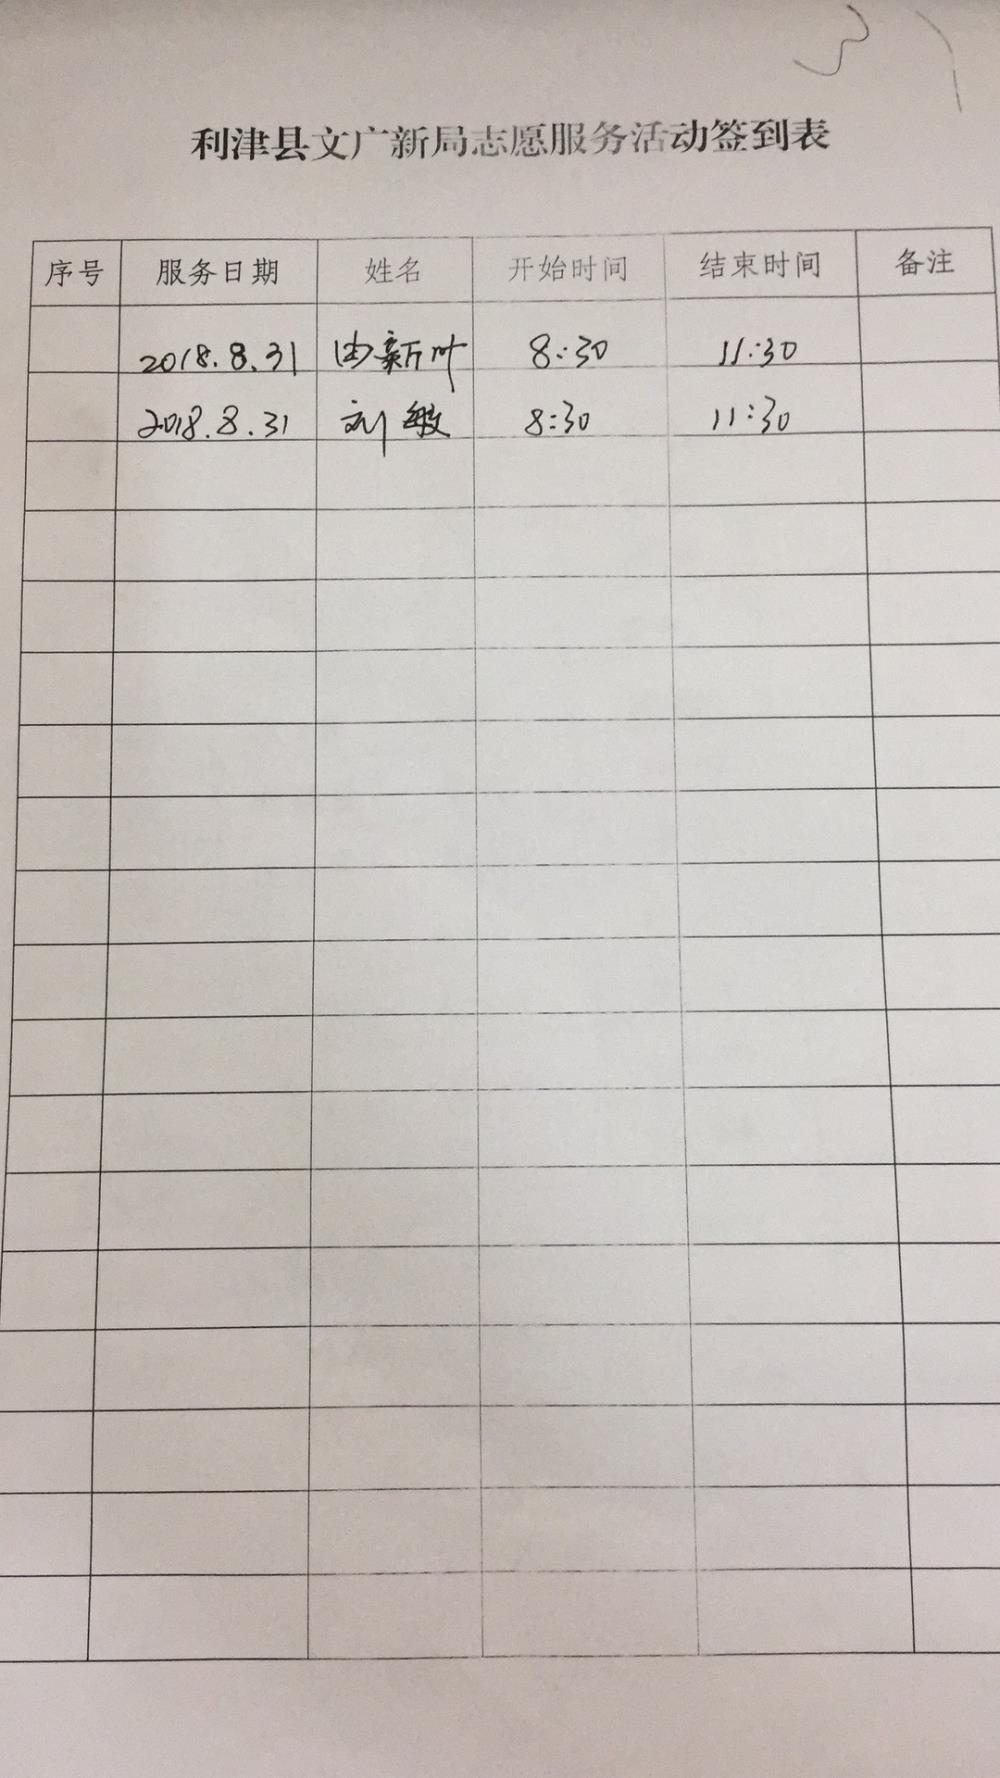 利津县文广新局志愿服务活动签到表
序号 服务日期 姓名 开始时间 结束时间 备注
2018.8.31 由新叶 8:30 11:30
2018.8.31 刘敏 8:30 11:30